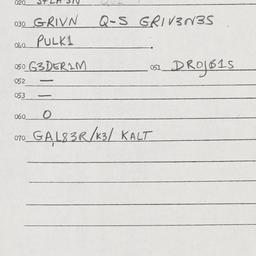 030 GRIVN Q-S GRIV3N3S
040 PULK1
050 G3DER1M 051 DROJØ1S
052 —
053 —
060 O
070 GAL83R/K3/ KALT